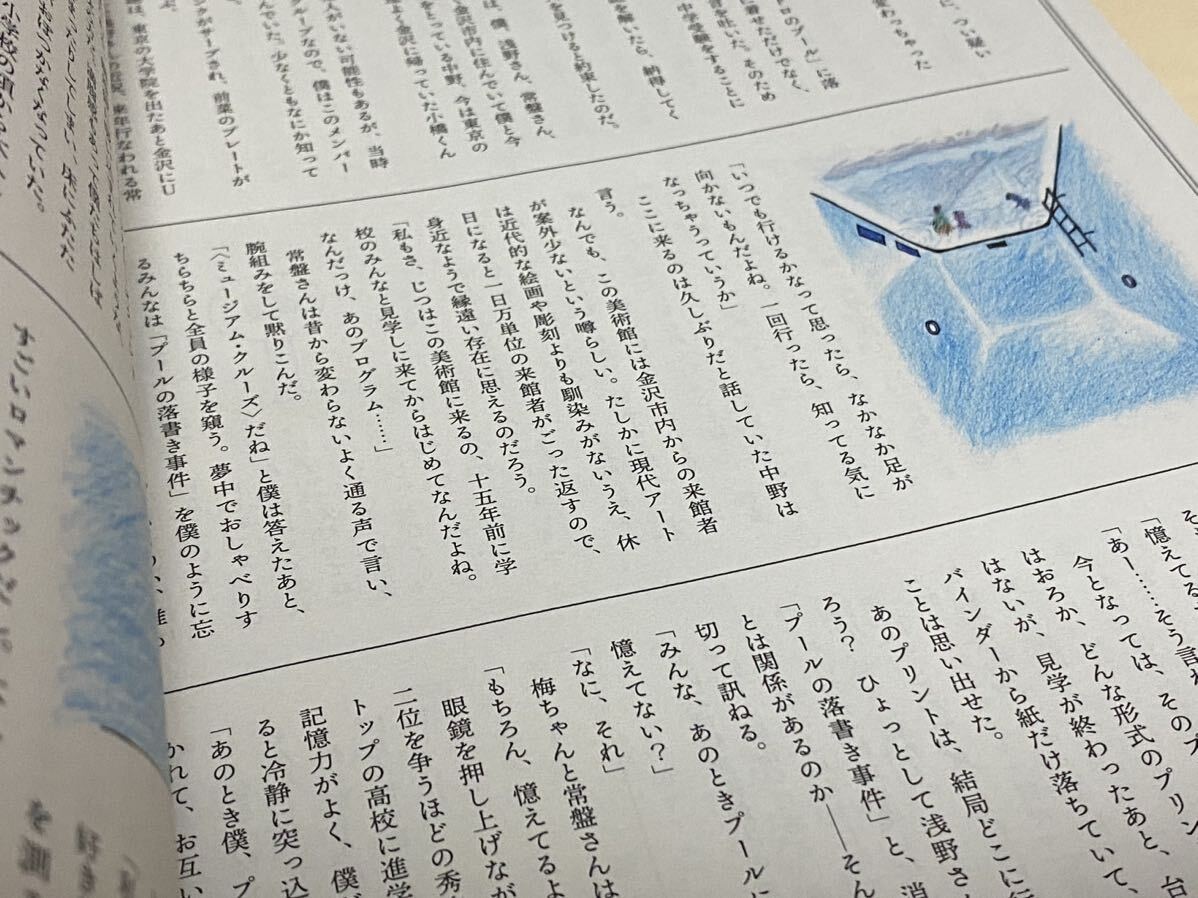 に、つい疑い
変わっちゃった
トロのプール」に落
に寄せただけでなく、
音を吐いた。そのため
中学受験をすることに
を解いたら、納得してく
を見つけると約束したのだ。
は、僕、浅野さん、常盤さん、
に金沢市内に住んでいて僕と今
をとっている中野、今は東京の
よく金沢に帰っていた小橋くん
人がいない可能性もあるが、当時
グループなので、僕はこのメンバー
んでいた。少なくともなにか知って
ンチがサーブされ、前菜のプレートが
ぶ。
は、東京の大学院を出たあと金沢にU
来年行なわれる常
「いつでも行けるかなって思ったら、なかなか足が
向かないもんだよね。一回行ったら、知ってる気に
なっちゃうっていうか」
ここに来るのは久しぶりだと話していた中野は
言う。
なんでも、この美術館には金沢市内からの来館者
が案外少ないという噂らしい。たしかに現代アート
は近代的な絵画や彫刻よりも馴染みがないうえ、休
日になると一日万単位の来館者がごった返すので、
身近なようで縁遠い存在に思えるのだろう。
「私もさ、じつはこの美術館に来るの、十五年前に学
校のみんなと見学しに来てからはじめてなんだよね。
なんだっけ、あのプログラム……」
常盤さんは昔から変わらないよく通る声で言い、
腕組みをして黙りこんだ。
「〈ミュージアム・クルーズ〉だね」と僕は答えたあと、
ちらちらと全員の様子を窺う。夢中でおしゃべりす
るみんなは「プールの落書き事件」を僕のように忘
「憶えてる
「あー……そう言わ
今となっては、そのプ
はおろか、どんな形式のプリン
はないが、見学が終わったあと、台
バインダーから紙だけ落ちていて、
ことは思い出せた。
あのプリントは、結局どこに行
ろう？　ひょっとして浅野さ
「プールの落書き事件」と、消
とは関係があるのか――そん
切って訊ねる。
「みんな、あのときプールに
憶えてない？」
「なに、それ」
梅ちゃんと常盤さんは
「もちろん、憶えてるよ
眼鏡を押し上げなが
二位を争うほどの秀
トップの高校に進学
記憶力がよく、僕が
ると冷静に突っ込
「あのとき僕、プ
かれて、お互い
すごいロマンチックだ
を測